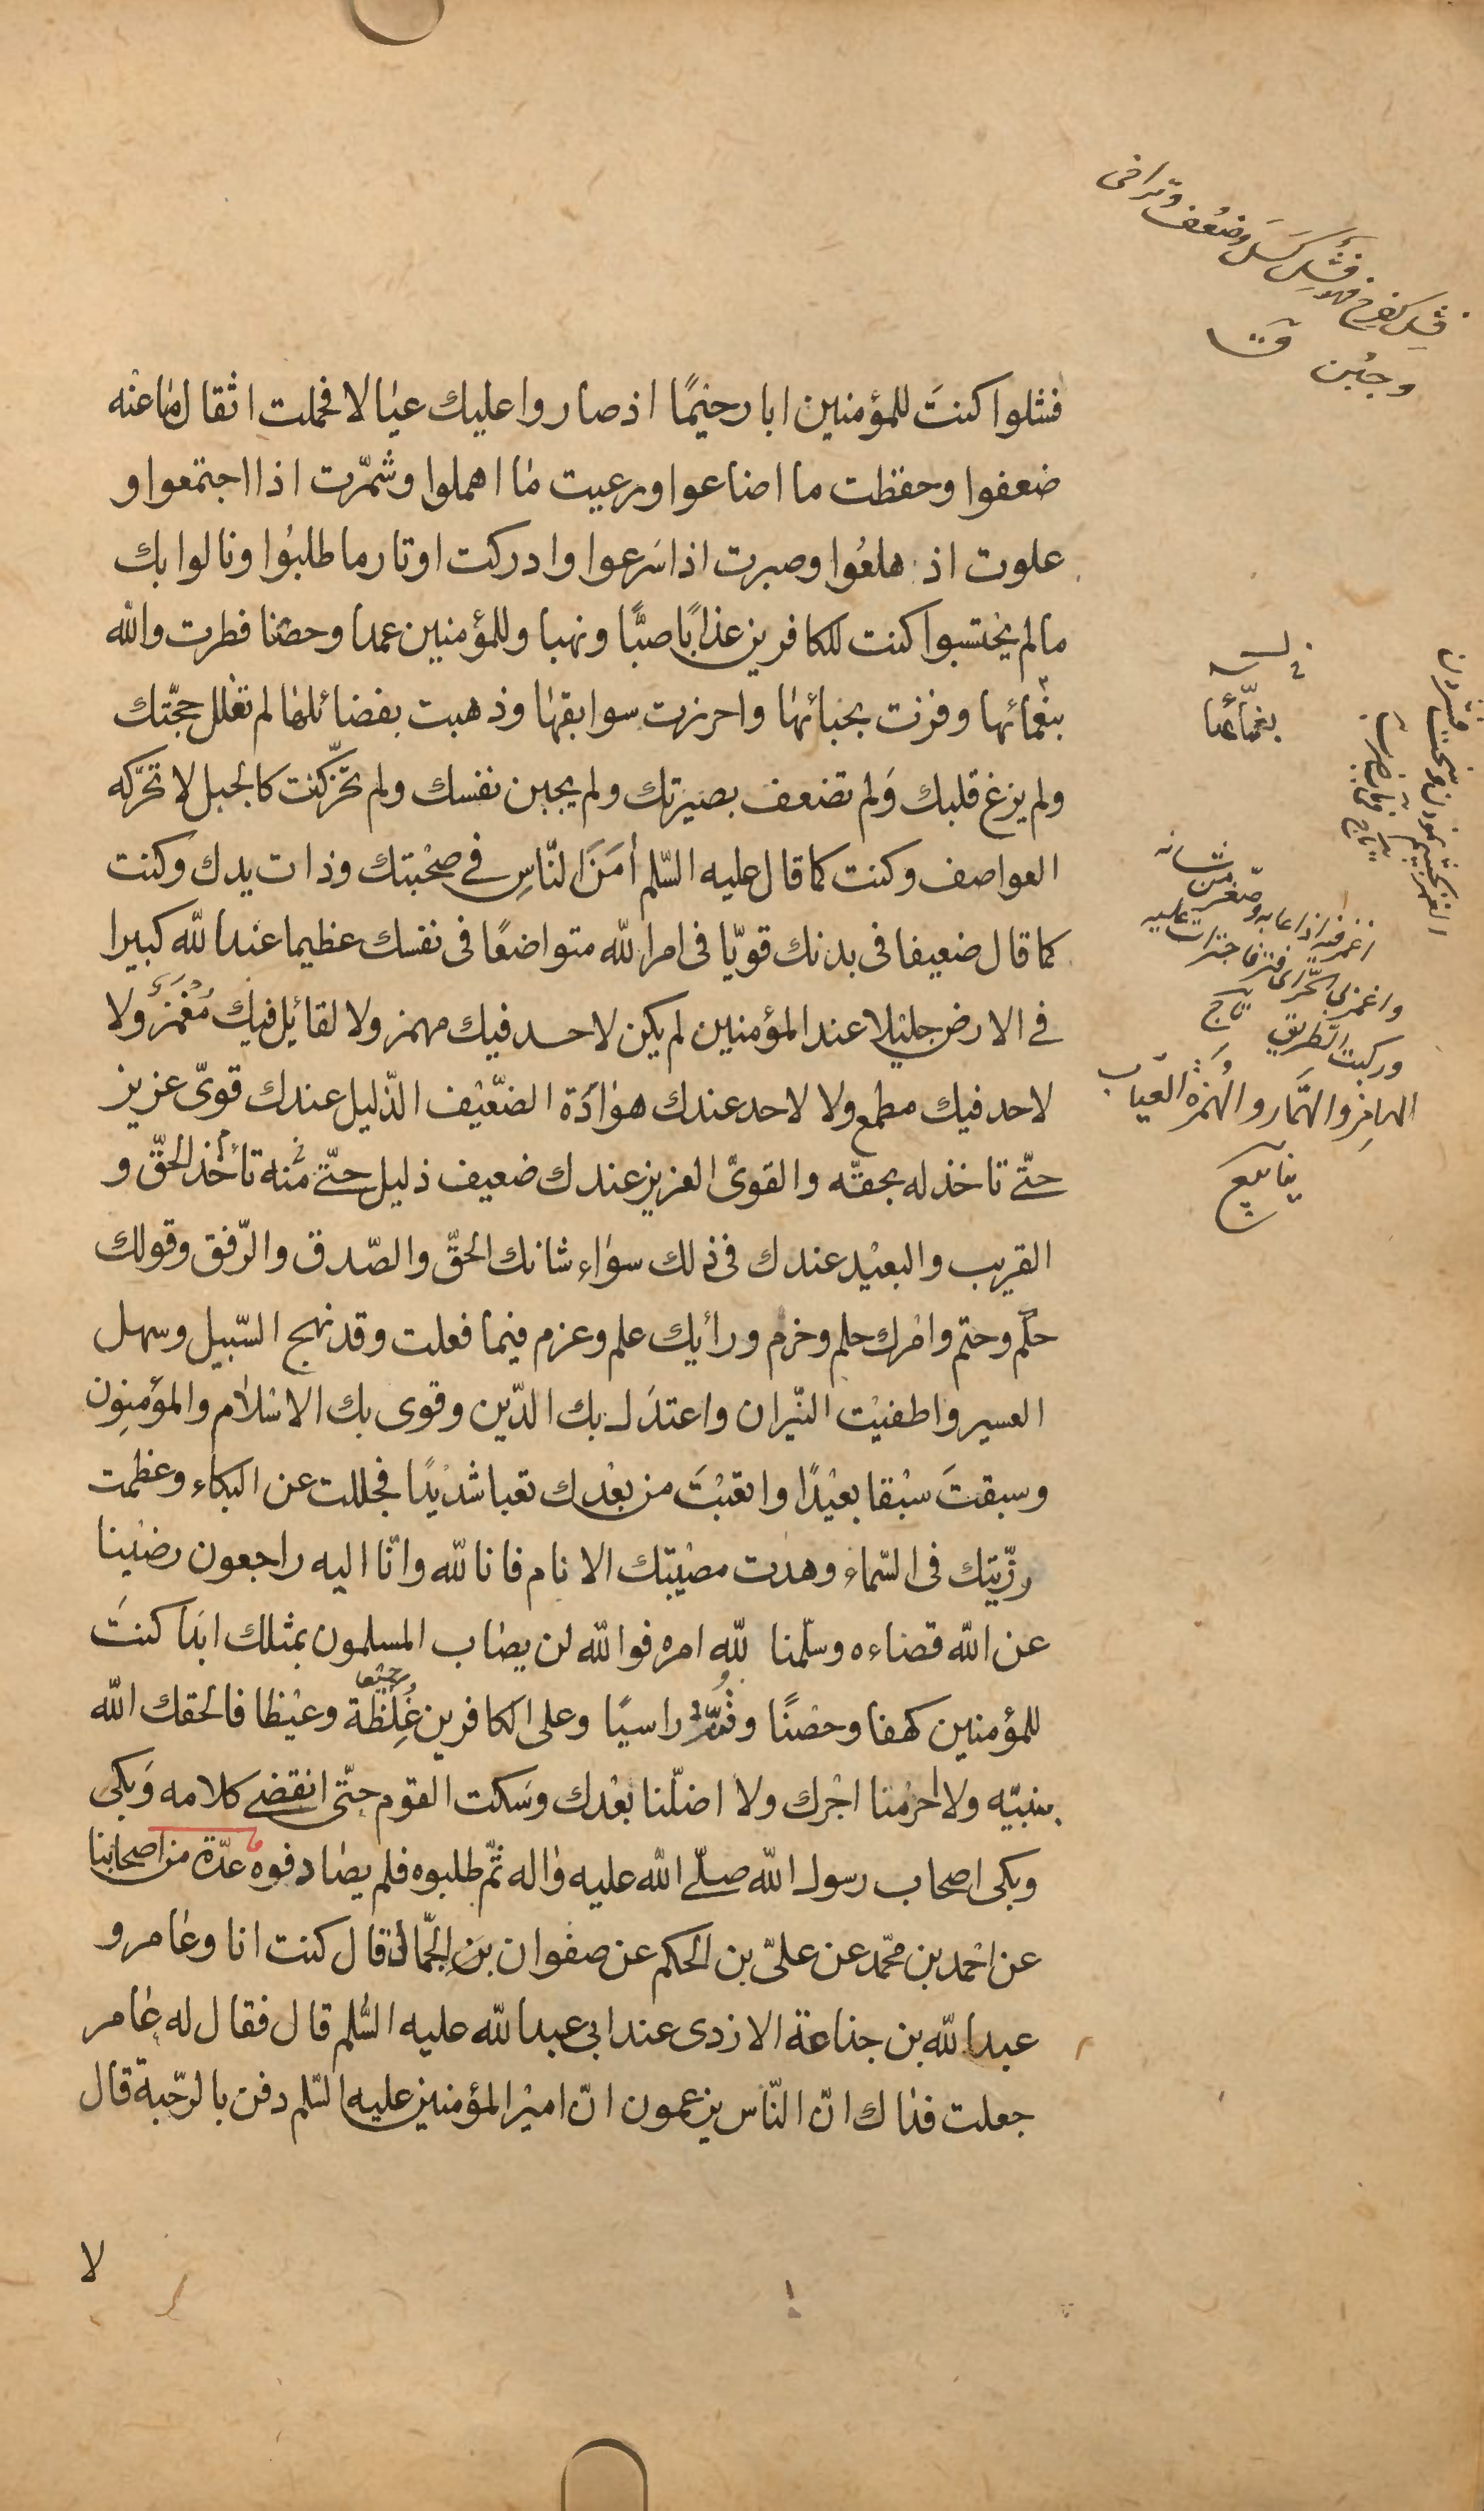 فشلوا كنتَ للمؤمنين ابا رحيمًا اذ صاروا عليك عيالا فحملت اثقال ما عنه
ضعفوا وحفظت ما اضاعوا ورعيت ما اهملوا وشمّرت اذا اجتمعوا و
علوت اذ هلعُوا وصبرت اذا سَرعوا وادركت اوتار ما طلبُوا ونالوا بك
ما لم يحتسبوا كنت للكافرين عذابًا صبًّا ونهبا وللمؤمنين عمدا وحصْنا فطرت والله
بنعمائها وفزت بحبائها واحرزت سوابقها وذهبت بفضائلها لم تفلل حجّتك
ولم يزغ قلبك وَلم تضعف بصيرتك ولم يجبن نفسك ولم تخّر كنت كالجبل لا تحرّكه
العواصف وكنت كما قال عليه السّلم أمَنَ النّاسِ فے صحْبتك وذات يدك وكنت
كما قال ضعيفا فى بدنك قويّا فى امر الله متواضعًا فى نفسك عظيما عند الله كبيرا
فے الارض جليلا عند المؤمنين لم يكن لاحد فيك مهمز ولا لقائل فيك مُغْمَز ولا
لاحد فيك مطمع ولا لاحد عندك هوادَة الضّعيْف الذّليل عندك قوىّ عزيز
حتّے تاخذ له بحقّه والقوىّ العزيز عندك ضعيف ذليل حتّے منه تأخذ الحقّ و
القريب والبعيْد عندك فى ذلك سوٰاء شانك الحقّ والصّدق والرّفق وقولك
حكْم وحتم وامْرك حلم وحزم ورأيك علم وعزم فيما فعلت وقد نهج السّبيل وسهل
العسير واطفيْت النّيران واعتدَل بك الدّين وقوى بك الاسْلام والمؤمنِون
وسبقتَ سبْقا بعيْدًا واتعبْتَ من بعْدك تعبا شديْدًا فجللت عن البكاء وعظمت
رزّيتك فى السّماء وهدت مصيْبتك الانام فانا لله وانّا اليه راجعون رضيْنا
عن الله قضاءه وسلّمنا لله امره فوالله لن يصٰاب المسلمون بمثلك ابَدا كنتَ
للمؤمنين كهفا وحصْنًا وقُنّة راسيًا وعلى الكافرين غِلظة وغيْظا فالحقك الله
بنبيّه ولا احرمْنا اجْرك ولا اضلّنا بعْدك وسَكت القوم حتّى انقضے كلامه وَبكى
وبكى اصحاب رسول الله صلّے الله عليه وٰاله ثمّ طلبوه فلم يصٰادفوه عدّة من اصحابنا
عن احْمد بن محمّد عن علىّ بن الحكم عن صفوان بن الجمّال قال كنت انا وعٰامر و
عبد الله بن جذاعة الازدى عند ابى عبد الله عليه السّلم قال فقال له عٰامر
جعلت فدٰاك انّ النّاس يزعمون انّ اميْر المؤمنين عليه السّلم دفن بالرّحبة قال
لا
فشل كفرح فهو فَشِل كَسَل وضَعُف وتراخى
وجبُن ق
بغمّائها
واغمز لى الحَرّ اى فتر فاجترأت عليه
وركبت الطّريق
الهامِز والهمّاز والهُمَزة العيّاب